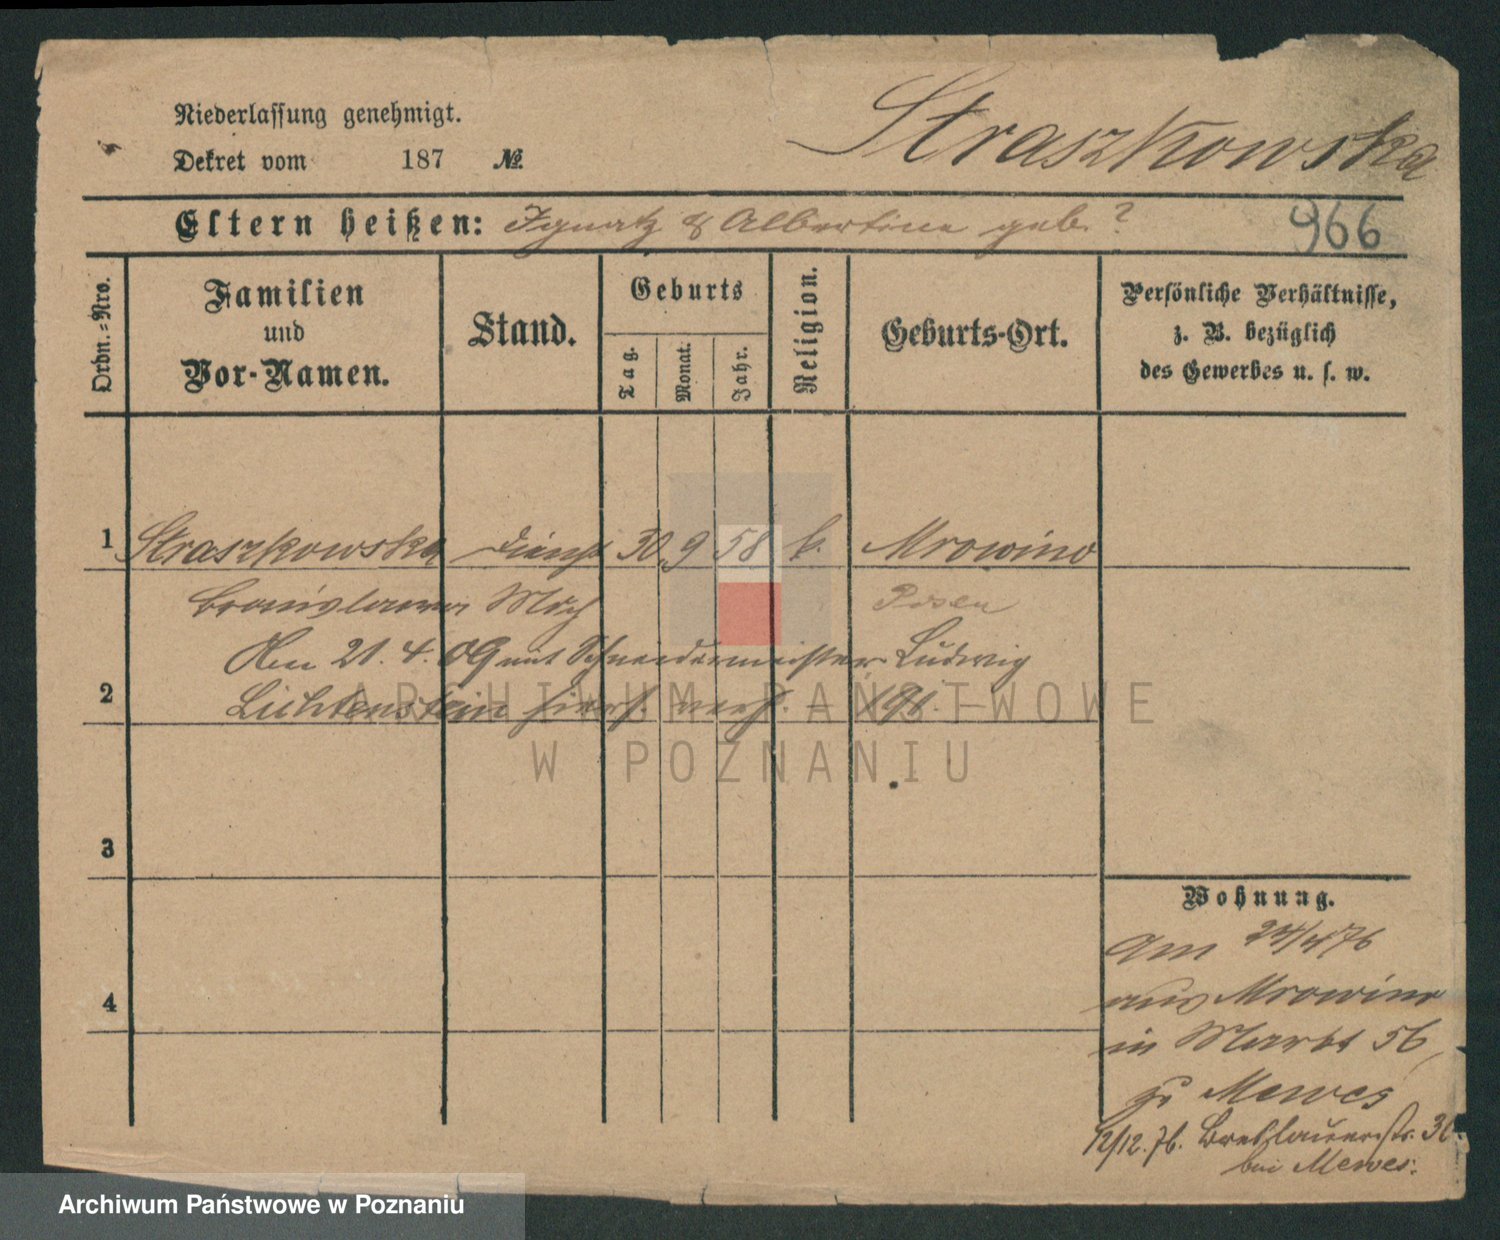 Niederlassung genehmigt.
Dekret vom 187 №
Straszkowska
Eltern heißen: Ignatz & Albertine geb. ?
966
Ordn.-Nro.
Familien
und
Vor-Namen.
Stand.
Geburts
Tag.
Monat.
Jahr.
Religion.
Geburts-Ort.
Persönliche Verhältnisse,
z. B. bezüglich
des Gewerbes u. s. w.
1 Straszkowska Dienst 30. 9 58 k. Mrowino
Bronislawa Posen
Am 21. 4. 09 mit Schneidermeister Ludwig
2 Lichtenstein hiers. verh.
3
4
Wohnung.
Am 24/4 76
aus Mrowino
in Markt 56,
zu Mewes
12/12. 76. Breslauerstr. 36.
bei Mewes.
ARCHIWUM PAŃSTWOWE
W POZNANIU
Archiwum Państwowe w Poznaniu